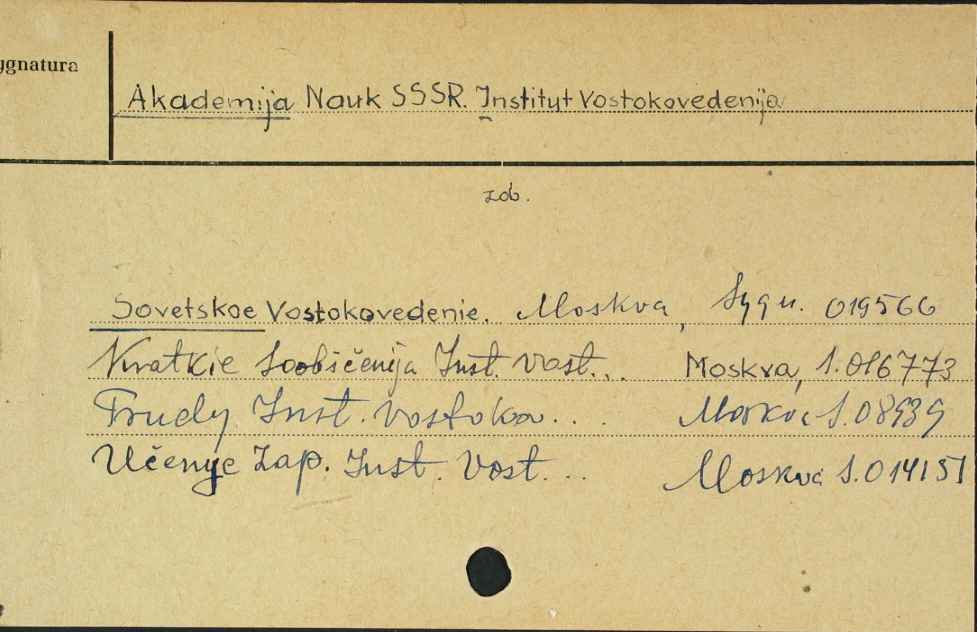 ygnatura
Akademija Nauk SSSR. Institut Vostokovedenija
zob.
Sovetskoe Vostokovedenie. Moskva, Sygn. 019566
Kratkie Soobščenija Inst. Vost... Moskva, S. 016773
Trudy Inst. Vostoko... Moskva S. 08939
Učenye Zap. Inst. Vost... Moskva S. 014151